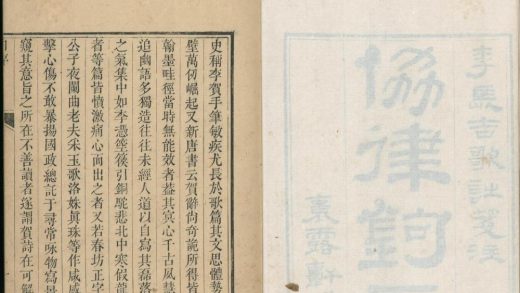 李長吉歌詩箋注
協律鉤
裛露軒
史稱李賀手筆敏疾尤長於歌篇其文思體勢
壁萬仞崛起又新唐書云賀辭尚奇詭所得皆
翰墨畦徑當時無能效者葢其冥心千古夙慧
追幽語多獨造往往未經人道以自寫其磊落
之氣集中如李憑箜篌引銅駝悲北中寒假龍
者等篇皆憤激痛心而出之者又若春坊正字
公子夜闌曲老夫采玉歌洛姝真珠等作咸感
擊心傷不敢暴揚國政總託于尋常咏物寫景
窺其意旨之所在不善讀者遂謂賀詩在可解